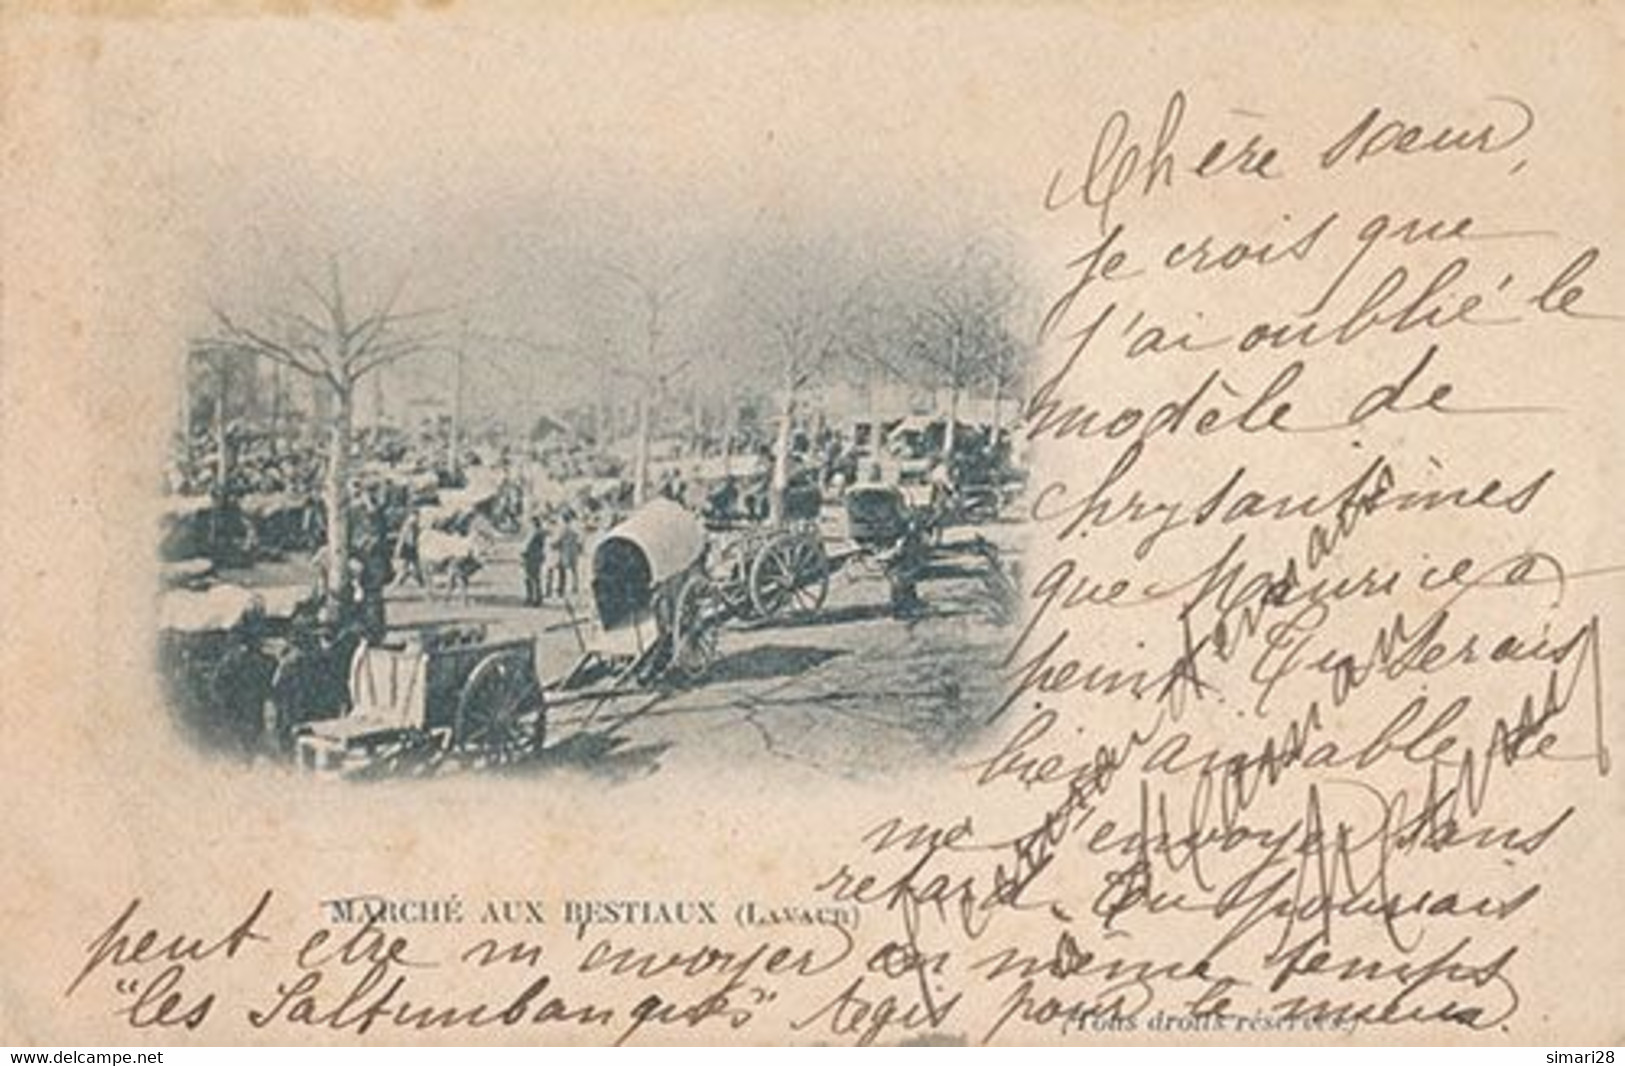 Chère sœur,
je crois que
j'ai oublié le
modèle de
chrysantèmes
que Maurice a
peint. Tu serais
bien aimable de
me l'envoyer sans
retard. Tu pourrais
MARCHÉ AUX BESTIAUX (LAVAUR)
peut être m'envoyer en même temps
"les Saltimbanques" Agis pour le mieux.
(Tous droits réservés.)
www.delcampe.net
simari28